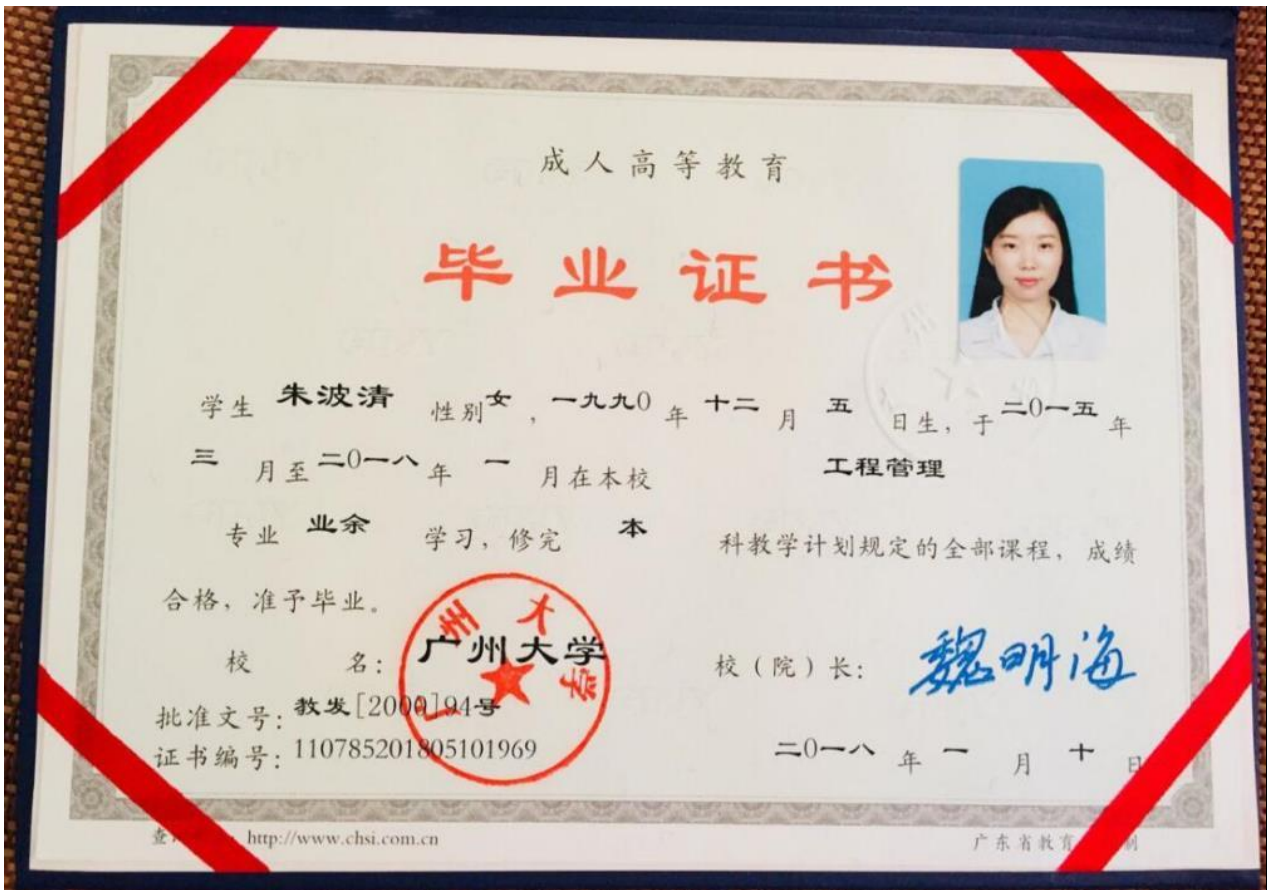 成人高等教育
毕业证书
学生 朱波清 性别 女 , 一九九0 年 十二 月 五 日生, 于 二0一五 年
三 月至 二0一八 年 一 月在本校 工程管理
专业 业余 学习, 修完 本 科教学计划规定的全部课程, 成绩
合格, 准予毕业。
校 名: 广州大学 校(院)长: 魏明海
广州大学
批准文号: 教发[2000]94号
证书编号: 110785201805101969
二0一八 年 一 月 十 日
查 http://www.chsi.com.cn 广东省教育 制